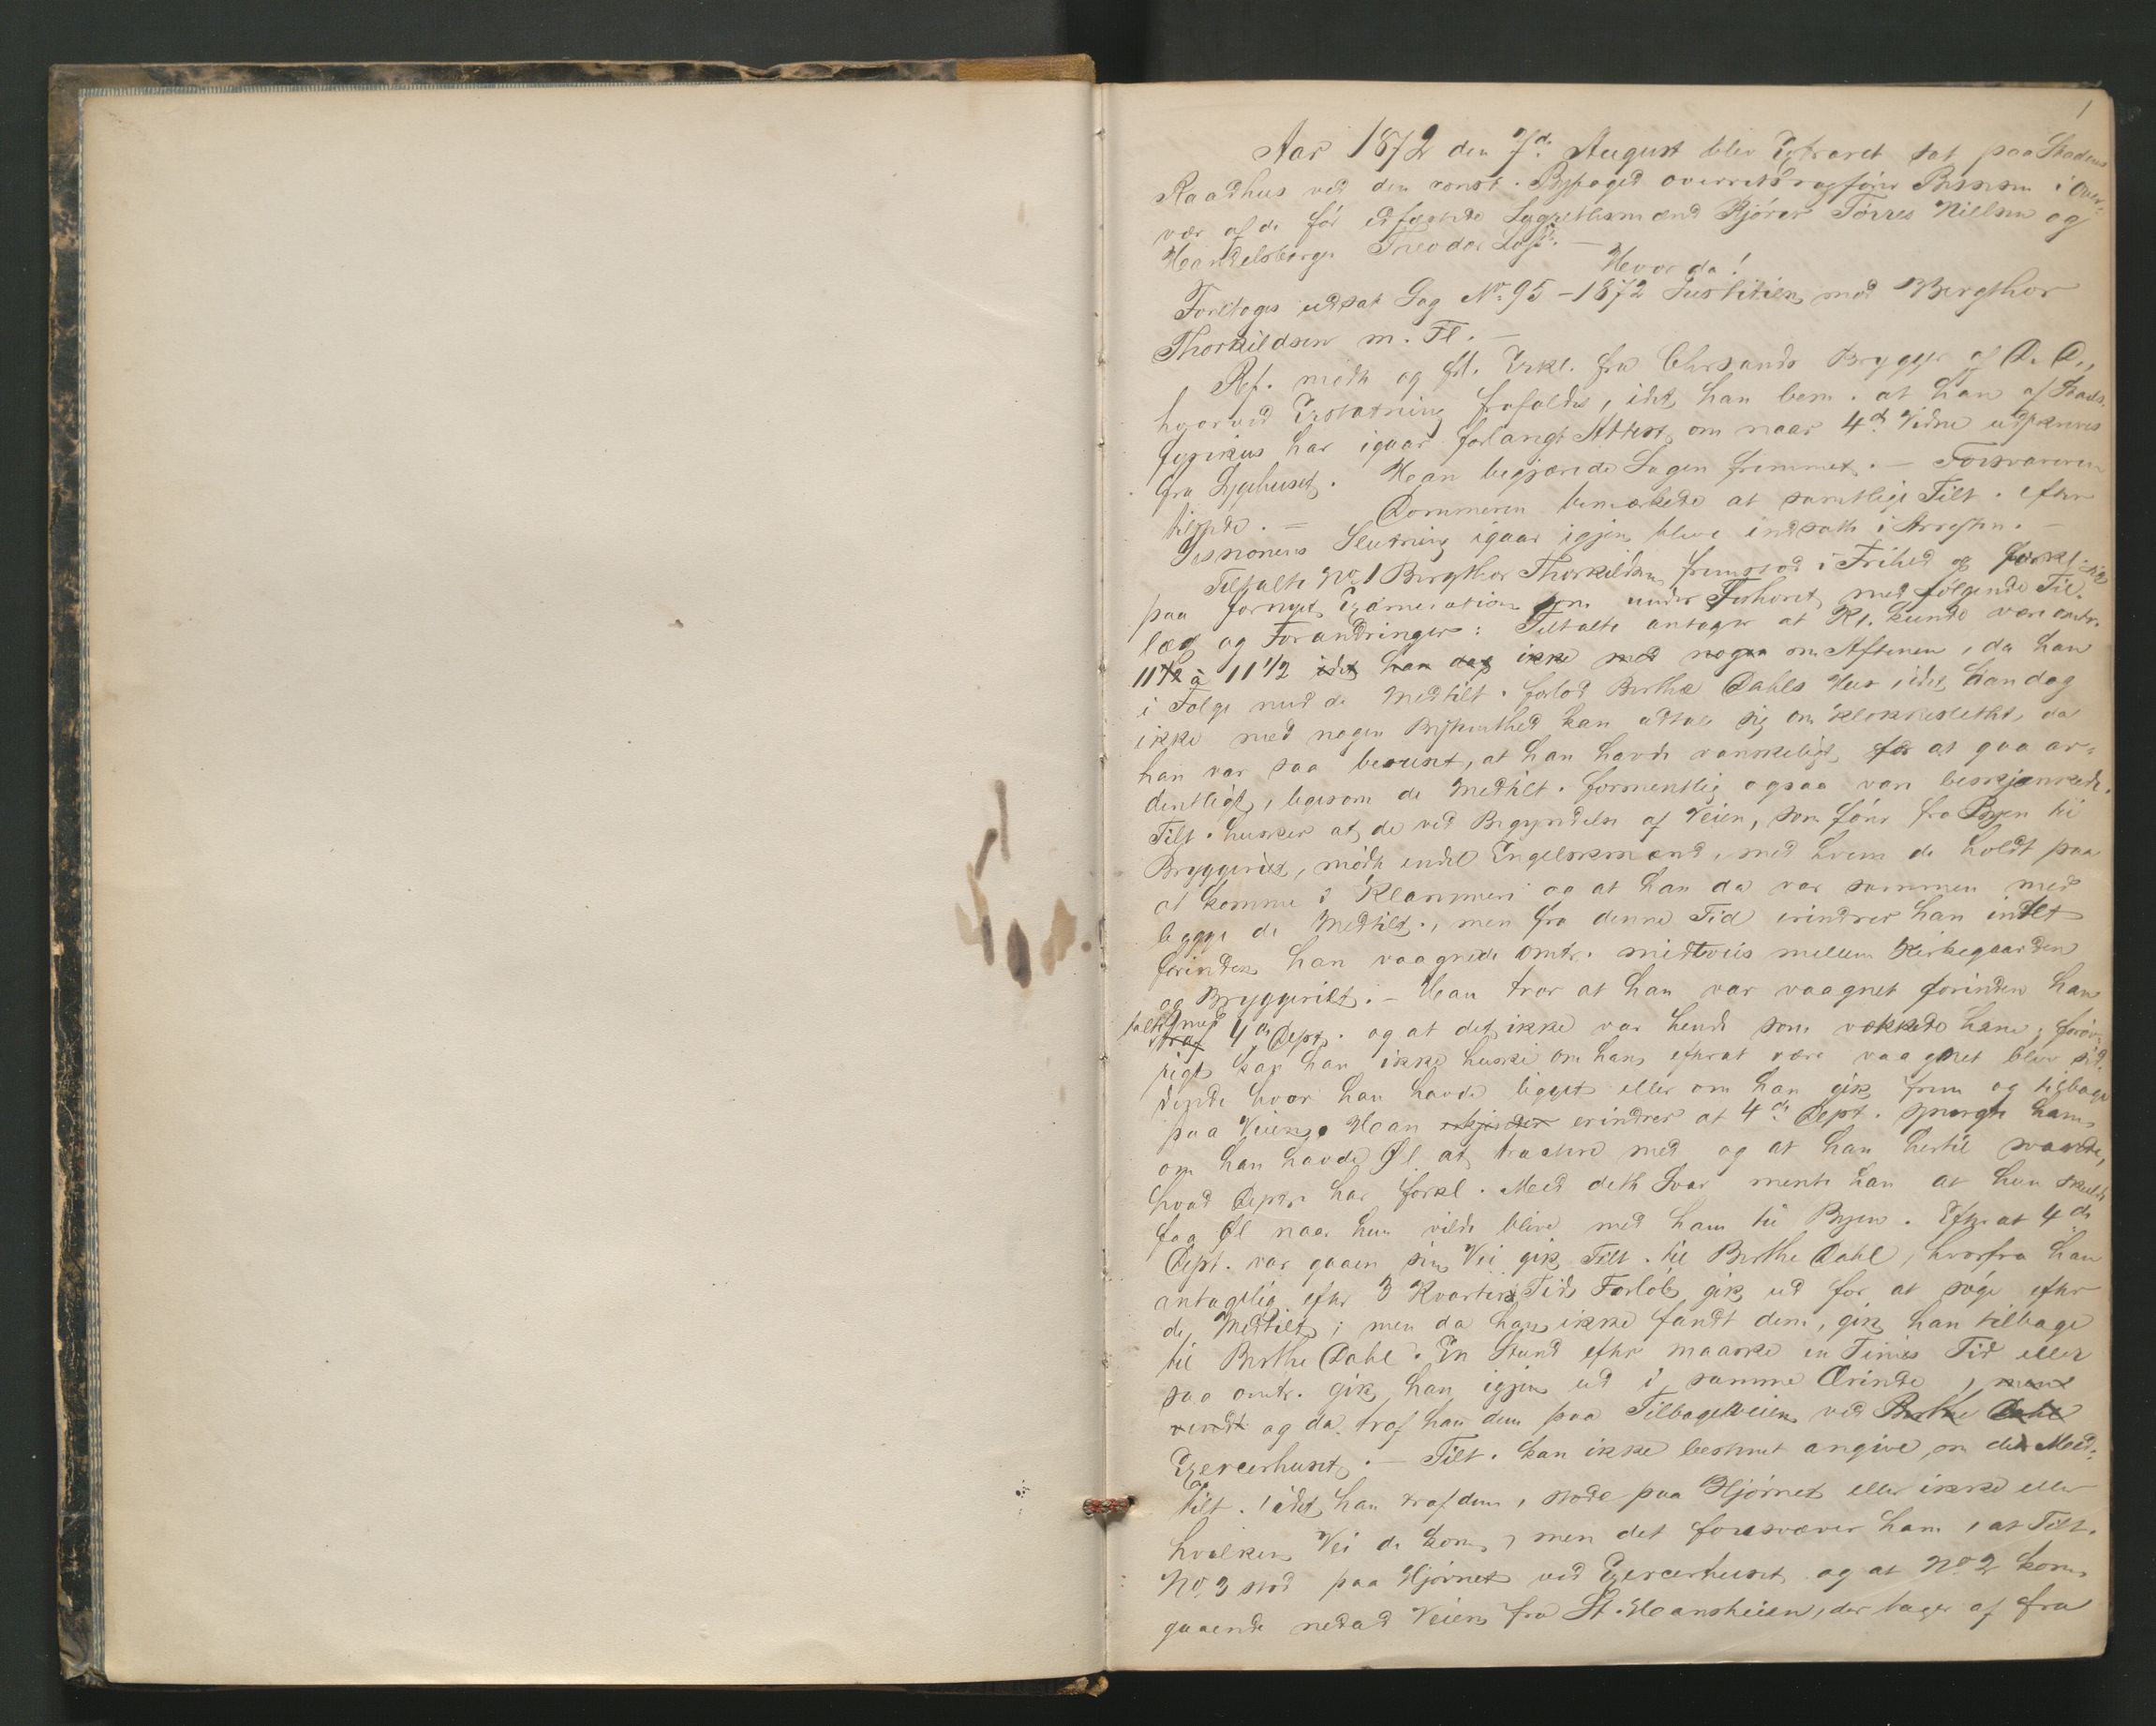 1
Aar 1872 den 7de August blev Extraret sat paa Stadens
Raadhus ved den const. Byfoged Overretssagfører i Over-
vær af de før edfæstede Lagrettesmænd Kjører Tørres Nielsen og
Handelsborger Theodor
Hvorda!
Foretoges udsat Sag No. 95-1872 Justitien mod Bergthor
Thorkildsen m. Fl. —
Ref. mødte og fl. Erkl. fra Chrsands Bryggeri af D. D.,
hvorved Erstatning frafaldes, idet han bem. at han af Stads-
fysikus har igaar forlangt Attest, om naar 4de Vidne udskreves
fra Sygehuset. Han begjærede Sagen fremmet. — Forsvareren
tilstede. — Dommeren bemærkede at samtlige Tilt. efter
Sessionens Slutning igaar igjen bleve indsatte i Arresten. —
Tiltalte No 1 Bergthor Thorkildsen fremstod i Frihed og forkl. sig
paa fornyet Examination som under Forhøret med følgende Til-
læg og Forandringer: Tiltalte antager at Kl. kunde være omtr.
11 à 11 1/2 idet han dog ikke med nogen om Aftenen, da han
i Følge med de Medtilt. forlod Berthe Dahls Hus, idet han dog
ikke med nogen Bestemthed kan udtale sig om Klokkeslettet, da
han var saa beruset, at han havde vanskeligt for at gaa or-
dentligt, ligesom de Medtilt. formentlig ogsaa vare beskjænkede.
Tilt. husker at de ved Begyndelsen af Veien, som fører fra Byen til
Bryggeriet, mødte endel Engelskmænd, med hvem de holdt paa
at komme i Klammeri og at han da var sammen med
begge de Medtilt., men fra denne Tid erindrer han intet
forinden han vaagnede omtr. midtveis mellem Kirkegaarden
og Bryggeriet. — Han tror at han var vaagnet forinden han
talte med traf 4de Dept. og at det ikke var hende som vækkede ham; forøv-
rigt kan han ikke huske om han efterat være vaagnet blev sid-
dende hvor han havde ligget eller om han gik frem og tilbage
paa Veien. Han erkjender erindrer at 4de Dept. spurgte ham
om han havde Øl at tractere med og at han hertil svarede,
hvad Dept. har forkl. Med dette Svar mente han at hun skulde
faa Øl naar hun vilde blive med ham til Byen. Efterat 4de
Dept. var gaaen sin Vei gik Tilt. til Berthe Dahl, hvorfra han
antagelig efter 3 Kvarters Tids Forløb gik ud for at søge efter
de Medtilt; men da han ikke fandt dem, gik han tilbage
til Berthe Dahl. En Stund efter maaske en Times Tid eller
saa omtr. gik han igjen ud i samme Ærinde, men
og da traf han dem paa Tilbageveien ved Berthe Dahl
Exercerhuset. — Tilt. kan ikke bestemt angive, om de Med-
tilt. idet han traf dem, stode paa Hjørnet eller ikke eller
hvilken Vei de kom, men det foresvæver ham, at Tilt.
No 3 stod paa Hjørnet ved Exercerhuset og at No 2 kom
gaaende nedad Veien fra St. Hansheien, der tager af fra